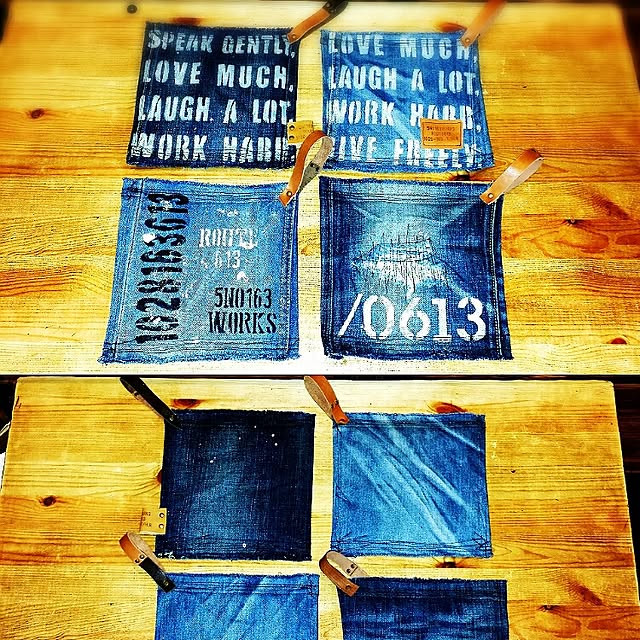 SPEAK GENTLY,
LOVE MUCH,
LAUGH A LOT,
WORK HARD,
LOVE MUCH,
LAUGH A LOT,
WORK HARD,
LIVE FREELY.
1028163613
ROUTE
613
5N0163
WORKS
/0613